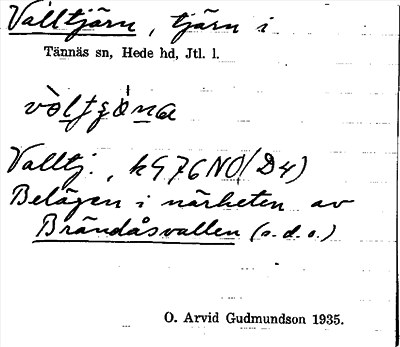 Valltjärn, tjärn i
Tännäs sn, Hede hd, Jtl. l.
Valltj., kG 76 NO (D4)
Belägen i närheten av
Brändåsvallen (s.d.o.)
O. Arvid Gudmundson 1935.